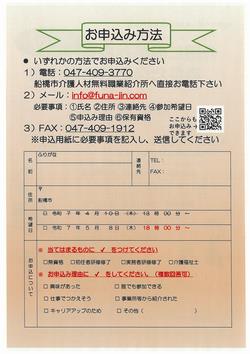 お申込み方法
● いずれかの方法でお申込みください
1）電話：047-409-3770
船橋市介護人材無料職業紹介所へ直接お電話下さい
2）メール：info@funa-jin.com
必要事項：①氏名 ②住所 ③連絡先 ④参加希望日
⑤申込み理由 ⑥保有資格
ここからも
お申込み
できます
3）FAX：047-409-1912
※申込用紙に必要事項を記入し、送信してください
ふりがな
氏名
連絡先
TEL：
FAX：
住所
〒
船橋市
希望日
□ 令和 7年 4月 10日（木） 18時00分～
□ 令和 7年 5月 8日（木） 18時00分～
お申込について
※ 当てはまるものに ✓ をつけてください
□無資格 □初任者研修修了 □実務者研修修了 □介護福祉士
※ お申込み理由に ✓ をしてください。（複数回答可）
□ 興味があった □ 誰でも参加できる
□ 仕事でつかえそう □ 事業所等から紹介された
□ キャリアアップのため □ その他（ ）